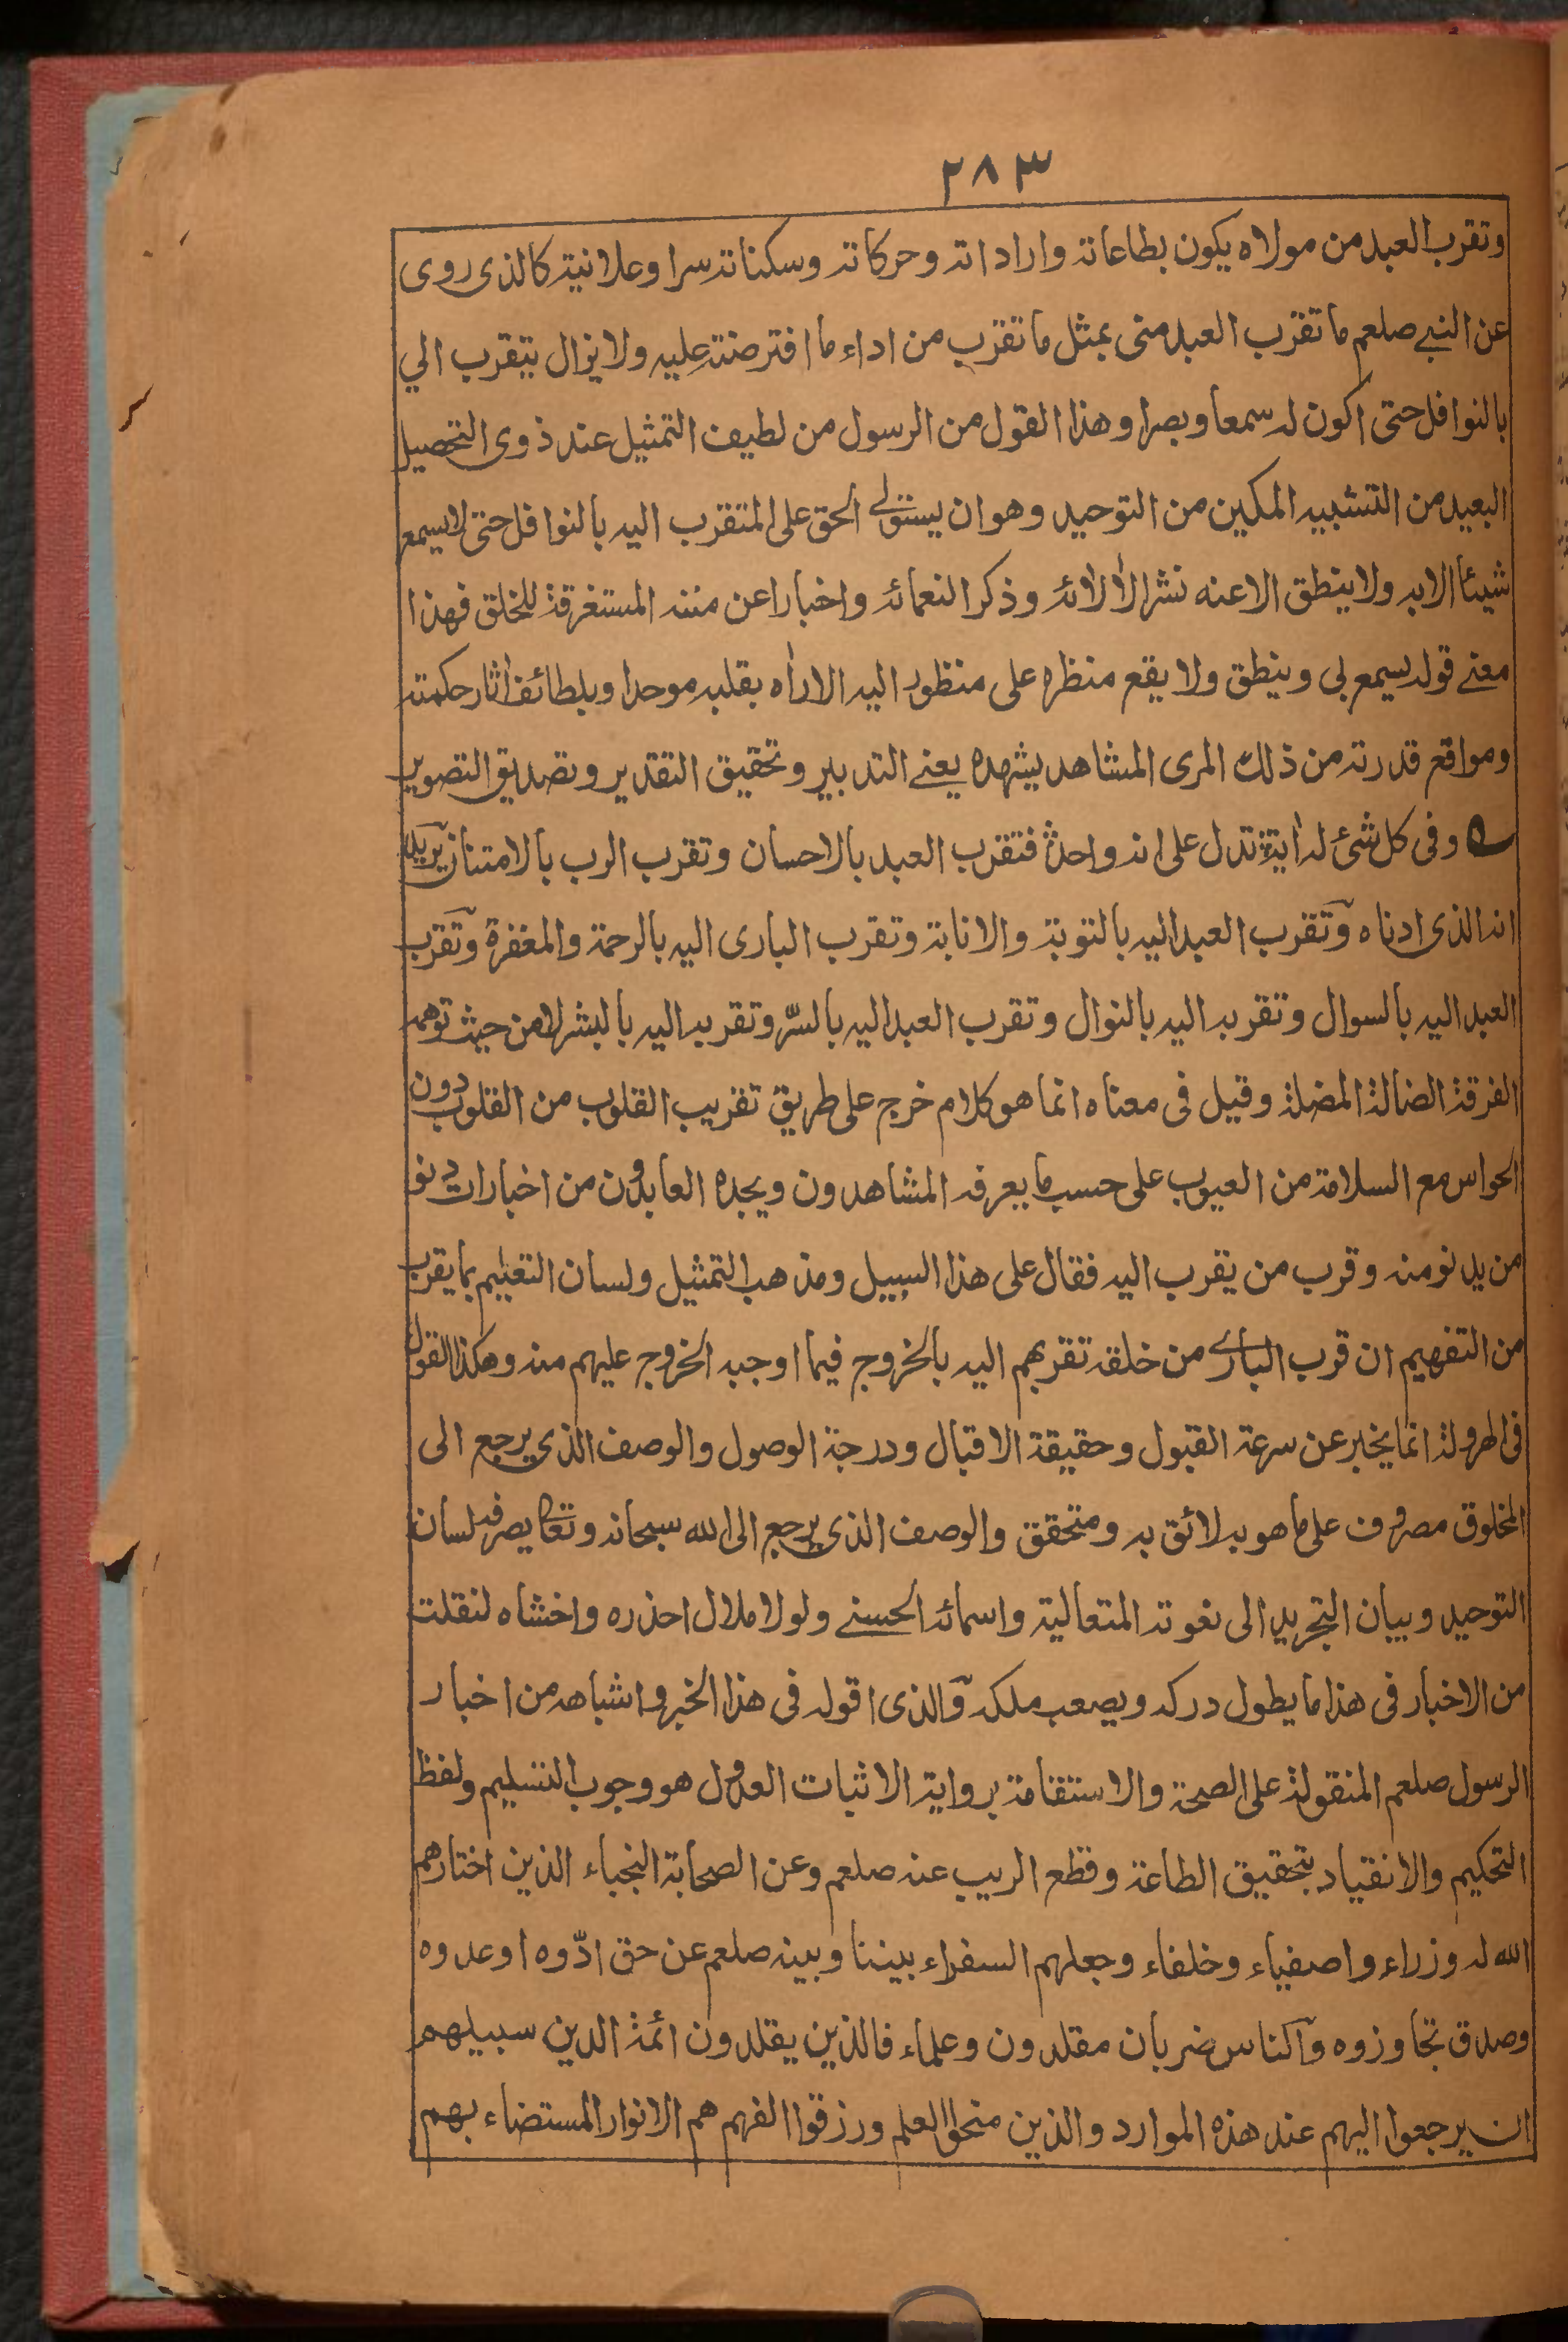 ٢٨٣
وتقرب العبد من مولاه يكون بطاعاته واراداته وحركاته وسكناته سرا وعلانية كالذى روى
عن النبي صلعم ما تقرب العبد منى بمثل ما تقرب من اداء ما افترضته عليه ولا يزال يتقرب الي
بالنوافل حتى اكون له سمعا وبصرا وهذا القول من الرسول من لطيف التمثيل عند ذوى التحصيل
البعيد من التشبيه المكين من التوحيد وهو ان يستولى الحق على المتقرب اليه بالنوافل حتى لا يسمع
شيئا الا به ولا ينطق الا عنه نشرا لآلائه وذكرا لنعمائه واخبارا عن مننه المستغرقة للخلق فهذا
معنى قوله يسمع بى وينطق ولا يقع منظره على منظور اليه الا راٰه بقلبه موحدا وبلطائف اٰثار حكمته
ومواقع قدرته من ذلك المرى المشاهد يشهده يعنى التدبير وتحقيق التقدير وتصديق التصوير
وفى كل شئ له اٰية تدل على انه واحد فتقرب العبد بالاحسان وتقرب الرب بالامتنان يريد
انه الذى ادناه وتقرب العبد اليه بالتوبة والانابة وتقرب البارى اليه بالرحمة والمغفرة وتقرب
العبد اليه بالسوال وتقربه اليه بالنوال وتقرب العبد اليه بالسرّ وتقربه اليه بالبشر لا من حيث توهمه
الفرقة الضالة المضلة وقيل فى معناه انما هو كلام خرج على طريق تقريب القلوب من القلوب دون
الحواس مع السلامة من العيوب على حسب ما يعرفه المشاهدون ويجده العابدون من اخبارات دنو
من يدنو منه وقرب من يقرب اليه فقال على هذا السبيل ومذهب التمثيل ولسان التعليم بما يقرب
من التفهيم ان قرب البارى من خلقه تقربهم اليه بالخروج فيما اوجبه الخروج عليهم منه وهكذا القول
فى الهرولة انما يخبر عن سرعة القبول وحقيقة الاقبال ودرجة الوصول والوصف الذى يرجع الى
المخلوق مصروف على ما هو به لائق به ومتحقق والوصف الذى يرجع الى الله سبحانه وتعالى يصرفه لسان
التوحيد وبيان التجريد الى نعوته المتعالية واسمائه الحسنى ولولا ملال احذره واخشاه لنقلت
من الاخبار فى هذا ما يطول دركه ويصعب ملكه والذى اقوله فى هذا الخبر واشباهه من اخبار
الرسول صلعم المنقولة على الصحة والاستقامة برواية الاثبات العدول هو وجوب التسليم ولفظ
التحكيم والانقياد بتحقيق الطاعة وقطع الريب عنه صلعم وعن الصحابة النجباء الذين اختارهم
الله له وزراء واصفياء وخلفاء وجعلهم السفراء بيننا وبينه صلعم عن حق ادّوه او عدوه
وصدق تجاوزوه والناس ضربان مقلدون وعلماء فالذين يقلدون ائمة الدين سبيلهم
ان يرجعوا اليهم عند هذه الموارد والذين منحوا العلم ورزقوا الفهم هم الانوار المستضاء بهم